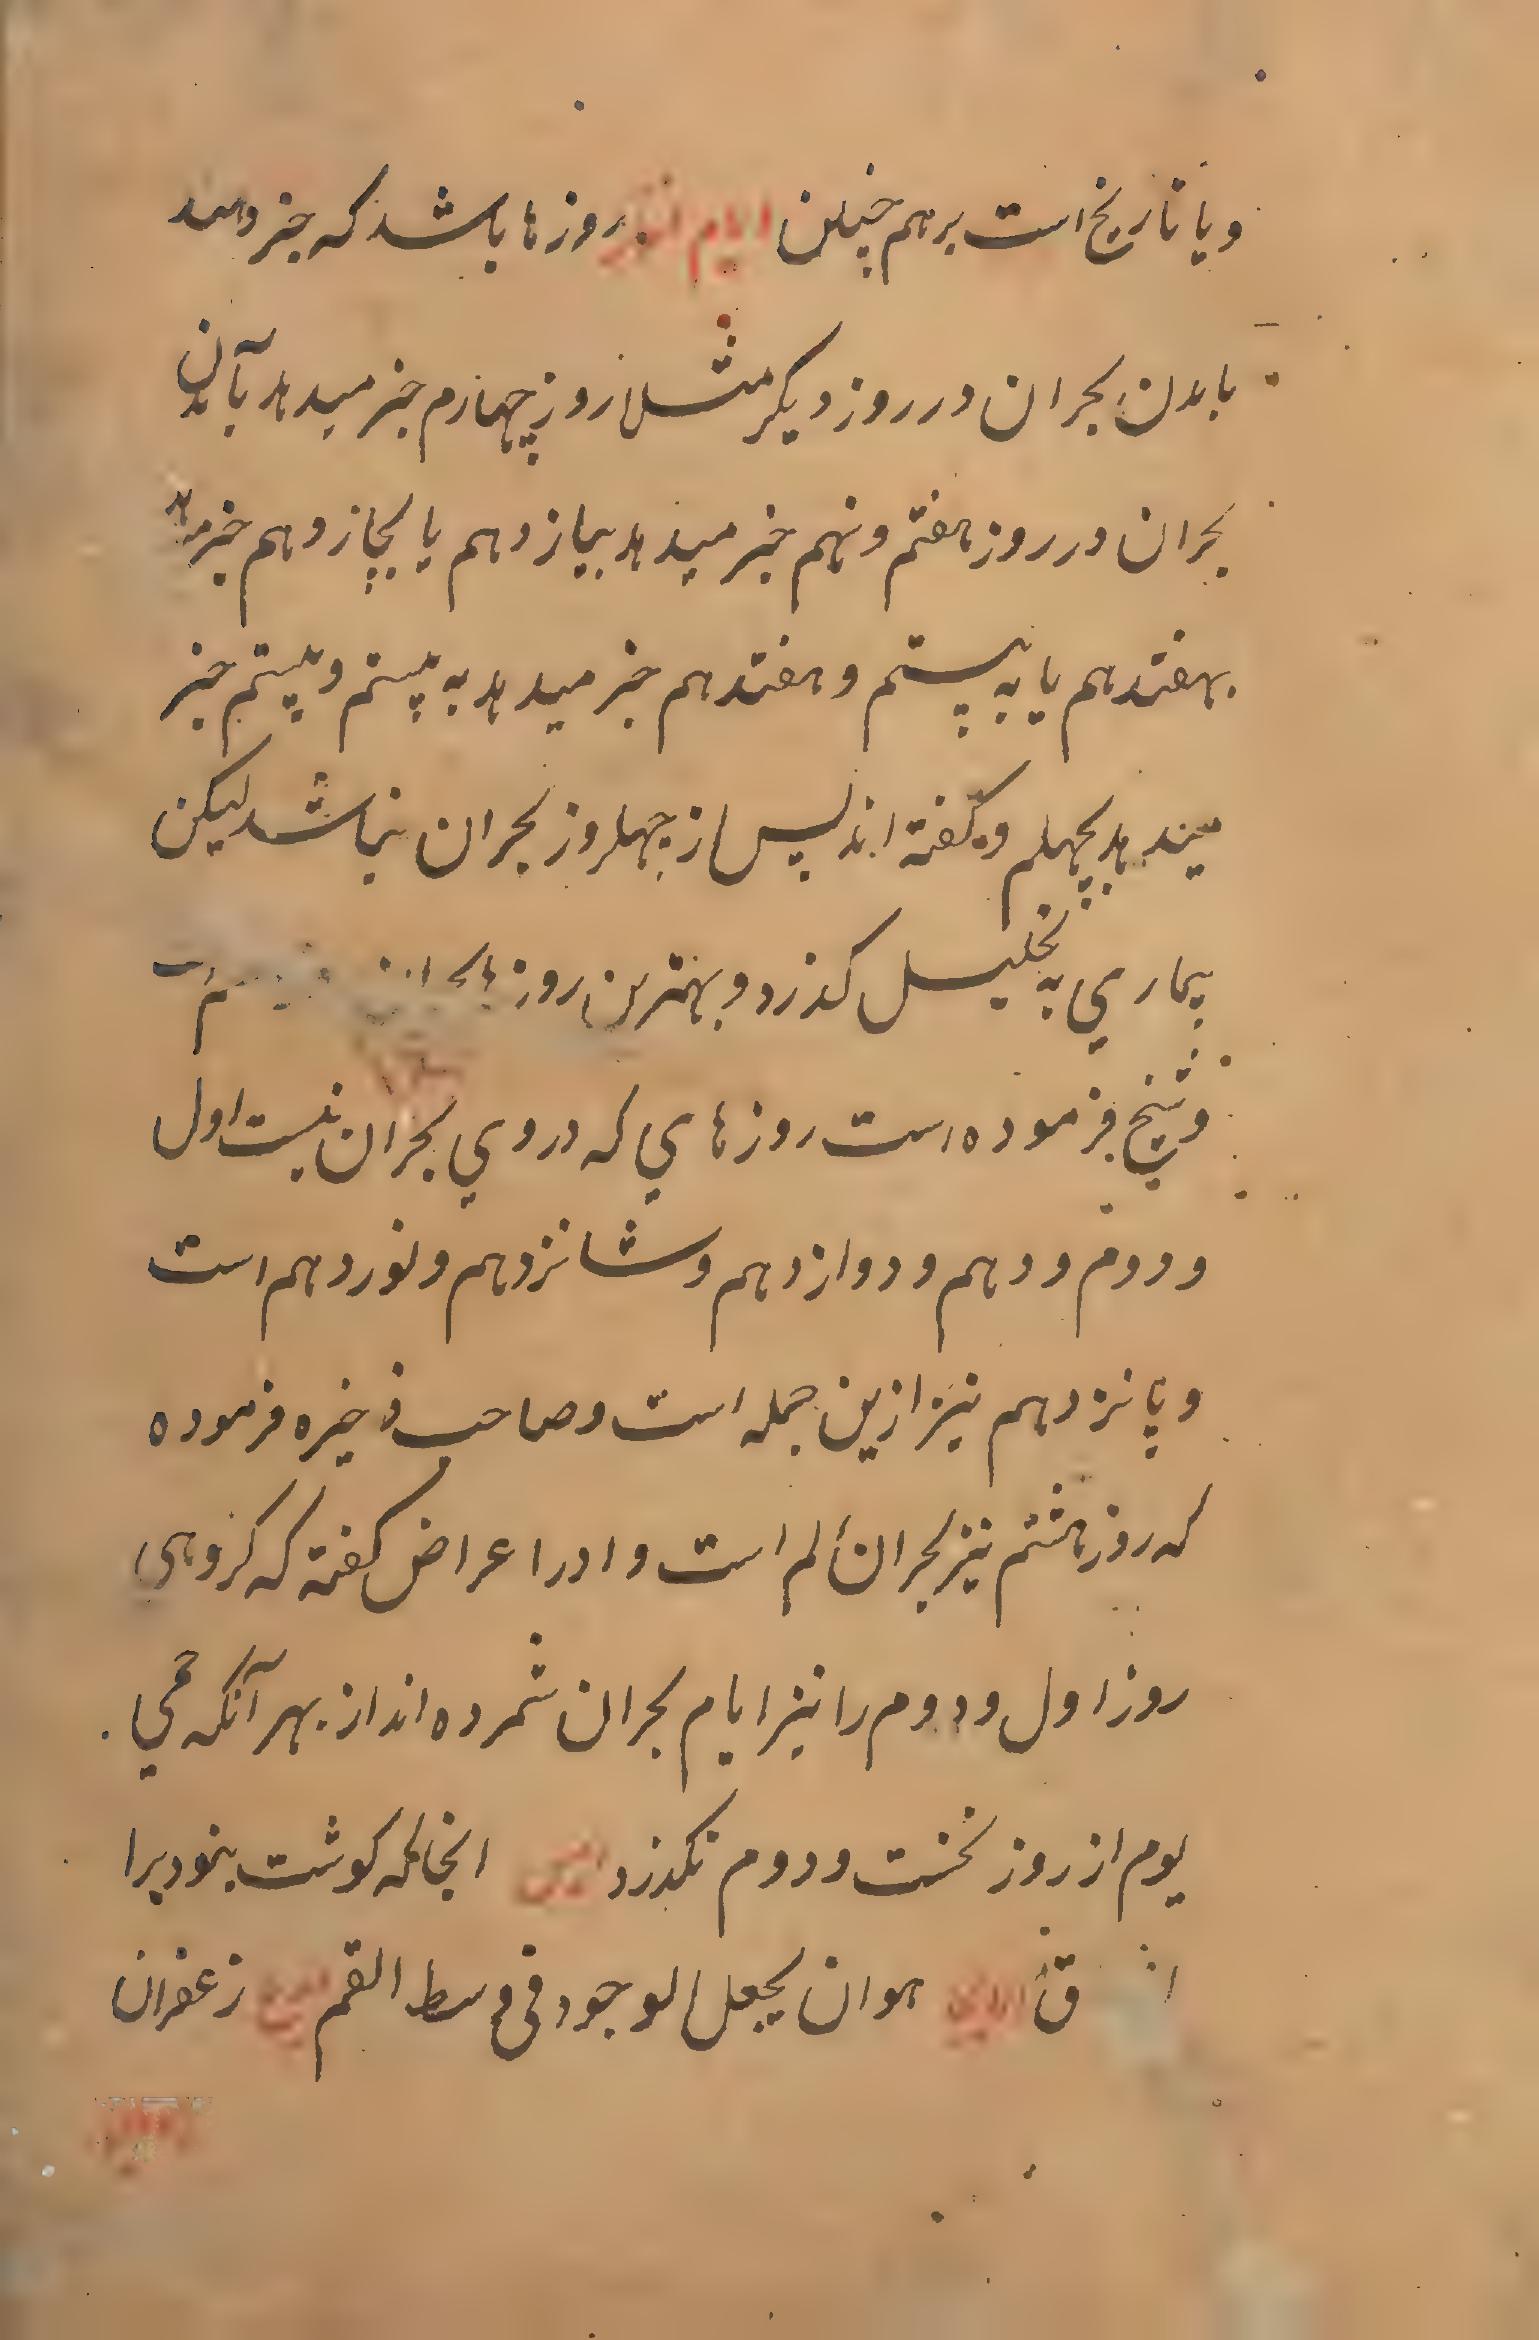 و یا تاریخ است برهم چنین ایام روزها باشد که خبر دهند
بامدن بحران در روز دیکر مثلا روز چهارم خبر میدهد بآمدن
بحران در روز هفتم و نهم خبر میدهد بیازدهم یا بچهاردهم خبر میدهد
بهفتدهم یا به بیستم و هفتدهم خبر میدهد به بیستم و بیستم خبر
میدهد بچهلم و گفته اند پس از چهلروز بحران نباشد لیکن
بیماری به تحلیل کذرد و بهترین روز
و شیخ فرموده است روزهای که در وی بحران نیست اول
و دوم و دهم و دوازدهم و شانزدهم و نوزدهم است
و پانزدهم نیز ازین جمله است و صاحب ذخیره فرموده
که روز هشتم نیز بحران است و در اعراض گفته که کروهی
روز اول و دوم را نیز ایام بحران شمرده اند از بهر آنکه حمی
یوم از روز نخست و دوم نکذرد انجا که کوشت
هو ان یجعل الوجور فی وسط الفم زعفران